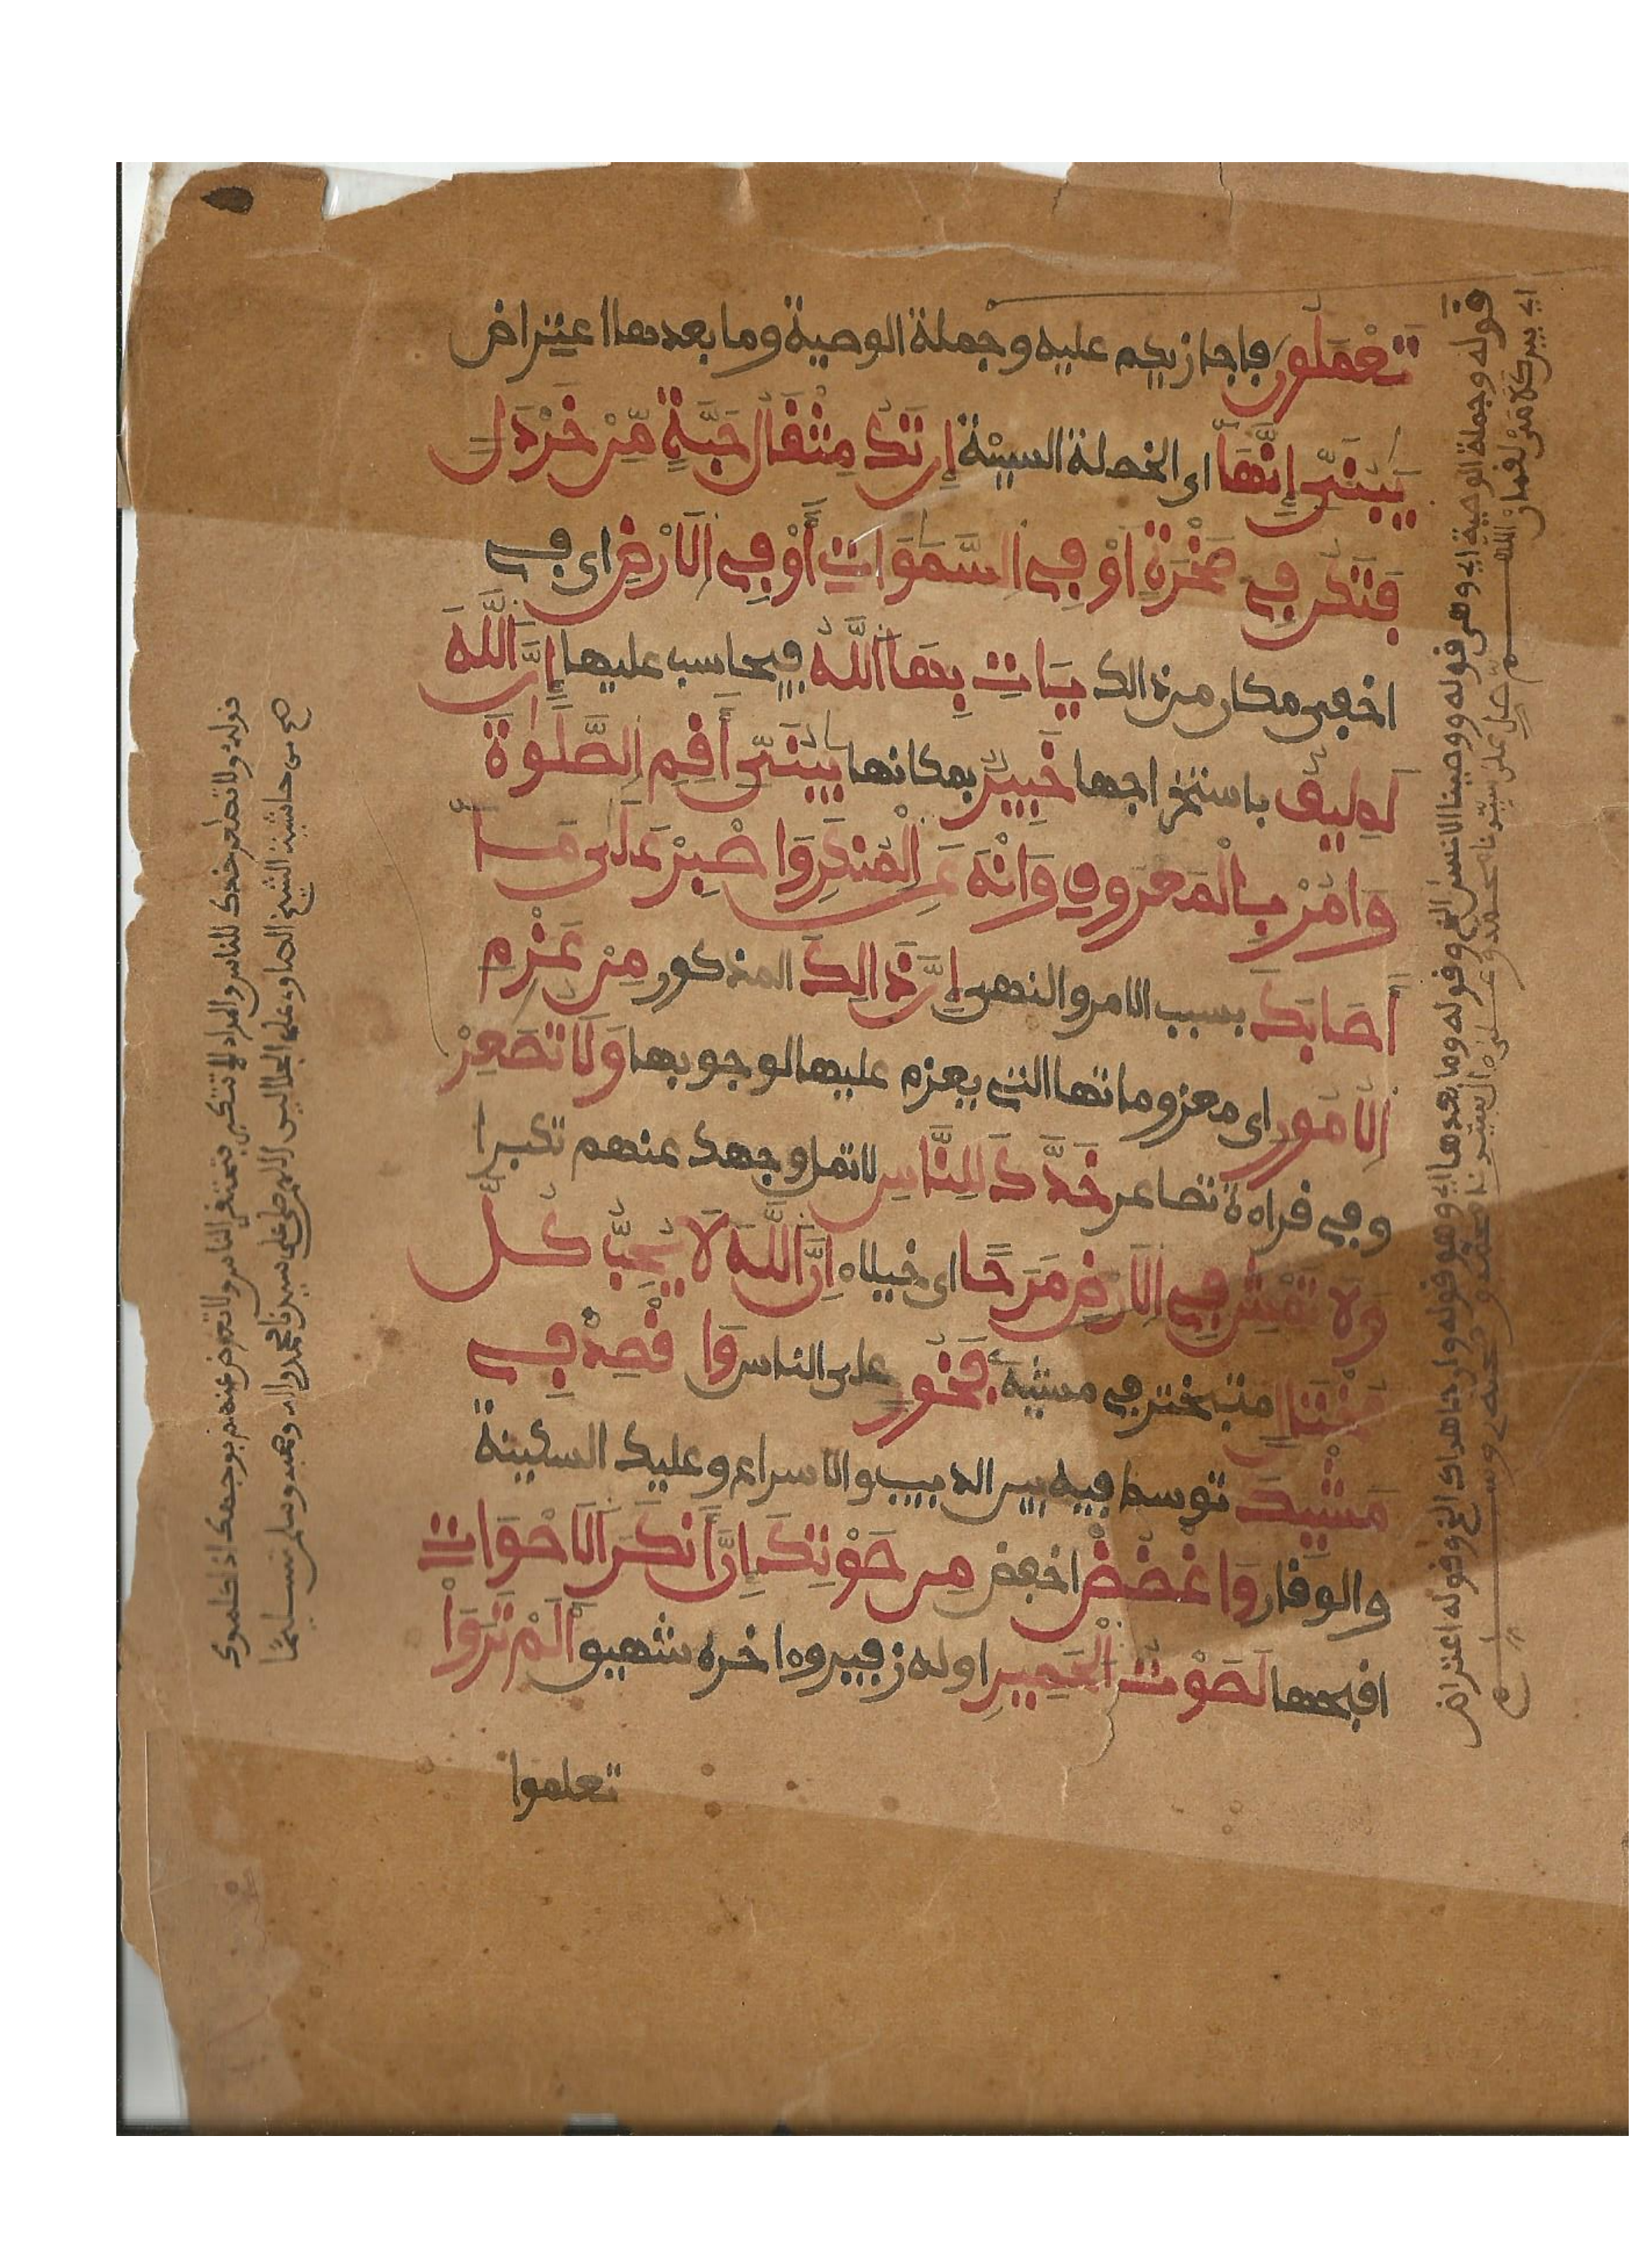 تَعْمَلُونَ فاجازيكم عليه وجملة الوصية وما بعدها اعتراض
يَٰبُنَيِّ إِنَّهَا اى الخصلة السيئة إِن تَكُ مِثْقَالُ حَبَّةٍ مِّنْ خَرْدَلٍ
فَتَكُن فِي صَخْرَةٍ أَوْ فِي السَّمَٰوَاتِ أَوْ فِي الْأَرْضِ اى في
اخفى مكان من ذالك يَاتِ بِهَا اللَّهُ فيحاسب عليها إِنَّ اللَّهَ
لَطِيفٌ باستخراجها خَبِيرٌ بمكانها يَٰبُنَيِّ أَقِمِ الصَّلَوٰةَ
وَامُرْ بِالْمَعْرُوفِ وَانْهَ عَنِ الْمُنكَرِ وَاصْبِرْ عَلَى مَا
أَصَابَكَ بسبب الامر والنهى إِنَّ ذَالِكَ المذكور مِنْ عَزْمِ
الْأُمُورِ اى معزوماتها التى يعزم عليها لوجوبها وَلَا تُصَعِّرْ
وفي قراءة تصاعر خَدَّكَ لِلنَّاسِ لا تمل وجهك عنهم تكبرا
وَلَا تَمْشِ فِي الْأَرْضِ مَرَحًا اى خيلاء إِنَّ اللَّهَ لَا يُحِبُّ كُلَّ
مُخْتَالٍ متبختر في مشيه فَخُورٍ على الناس وَاقْصِدْ فِي
مَشْيِكَ توسط فيه بين الدبيب والاسراع وعليك السكينة
والوقار وَاغْضُضْ اخفض مِن صَوْتِكَ إِنَّ أَنكَرَ الْأَصْوَاتِ
اقبحها لَصَوْتُ الْحَمِيرِ اوله زفير وءاخره شهيق أَلَمْ تَرَوْا
تعلموا
قوله وجملة الوصية اي وهى قوله ووصينا الانسن الخ وقوله وما بعدها اي وهو قوله وان جاهداك الخ وقوله اعتراض
اي بين كلامى لقمان اللهم صل على سيدنا محمد وعلى
قوله ولا تصعر خدك للناس والمراد لا تتكبر فتحتقر الناس ولا تعرض عنهم بوجهك اذا كلموك
صح من حاشية الشيخ الصاوى على الجلالين اللهم صل على سيدنا محمد وءاله وصحبه وسلم تسليما